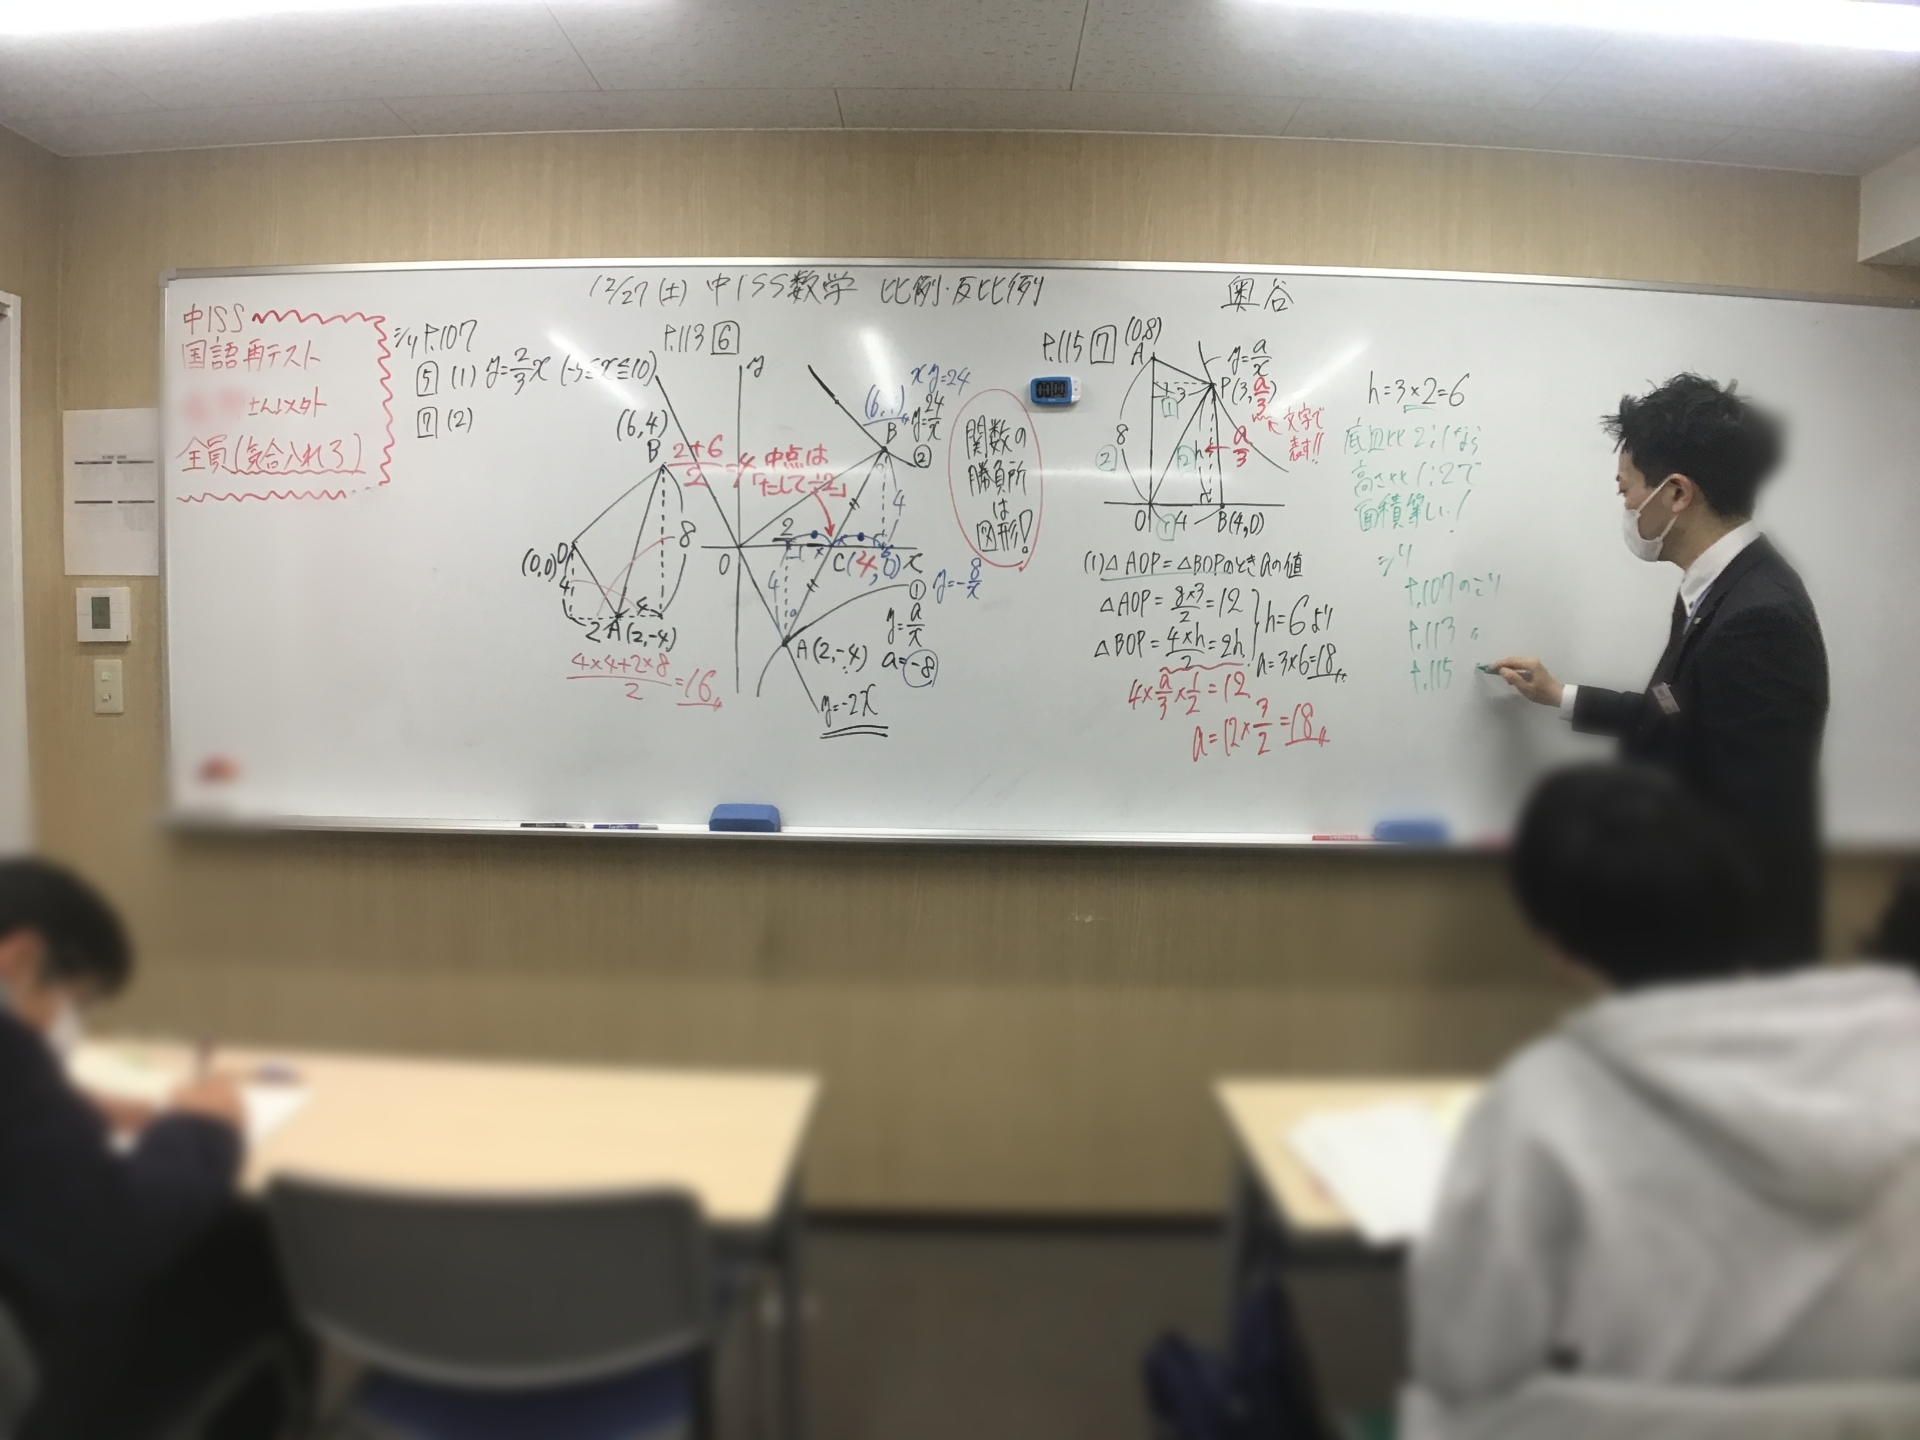 12/27(土) 中1SS数学 比例・反比例 奥谷
中1SS
国語再テスト
さん以外
全員(気合入れろ)
シリ P.107
5 (1) y=2/3x (-3≦x≦10)
7 (2)
P.113 6
(6,4)
B
(0,0) O
4
2 A(2,-4)
4
8
(4×4+2×8)/2=16
(2+6)/2=4
中点は
「たして÷2」
y
O
2
C(4,0) x
4
4
B
xy=24
y=24/x
②
①
y=-8/x
y=a/x
a=-8
A(2,-4)
y=-2x
関数の
勝負所
は
図形!
P.115 7
(0,8)
A
y=a/x
P(3,a/3)
文字で
表す!!
3
1
8
2
2
h
a/3
O
1
4
B(4,0)
(1)△AOP=△BOPのときaの値
△AOP=8×3/2=12
△BOP=4×h/2=2h
h=6より
a=3×6=18
4×a/3×1/2=12
a=12×3/2=18
h=3×2=6
底辺比2:1なら
高さ比1:2で
面積等しい!
シリ
P.107のこり
P.113 〃
P.115